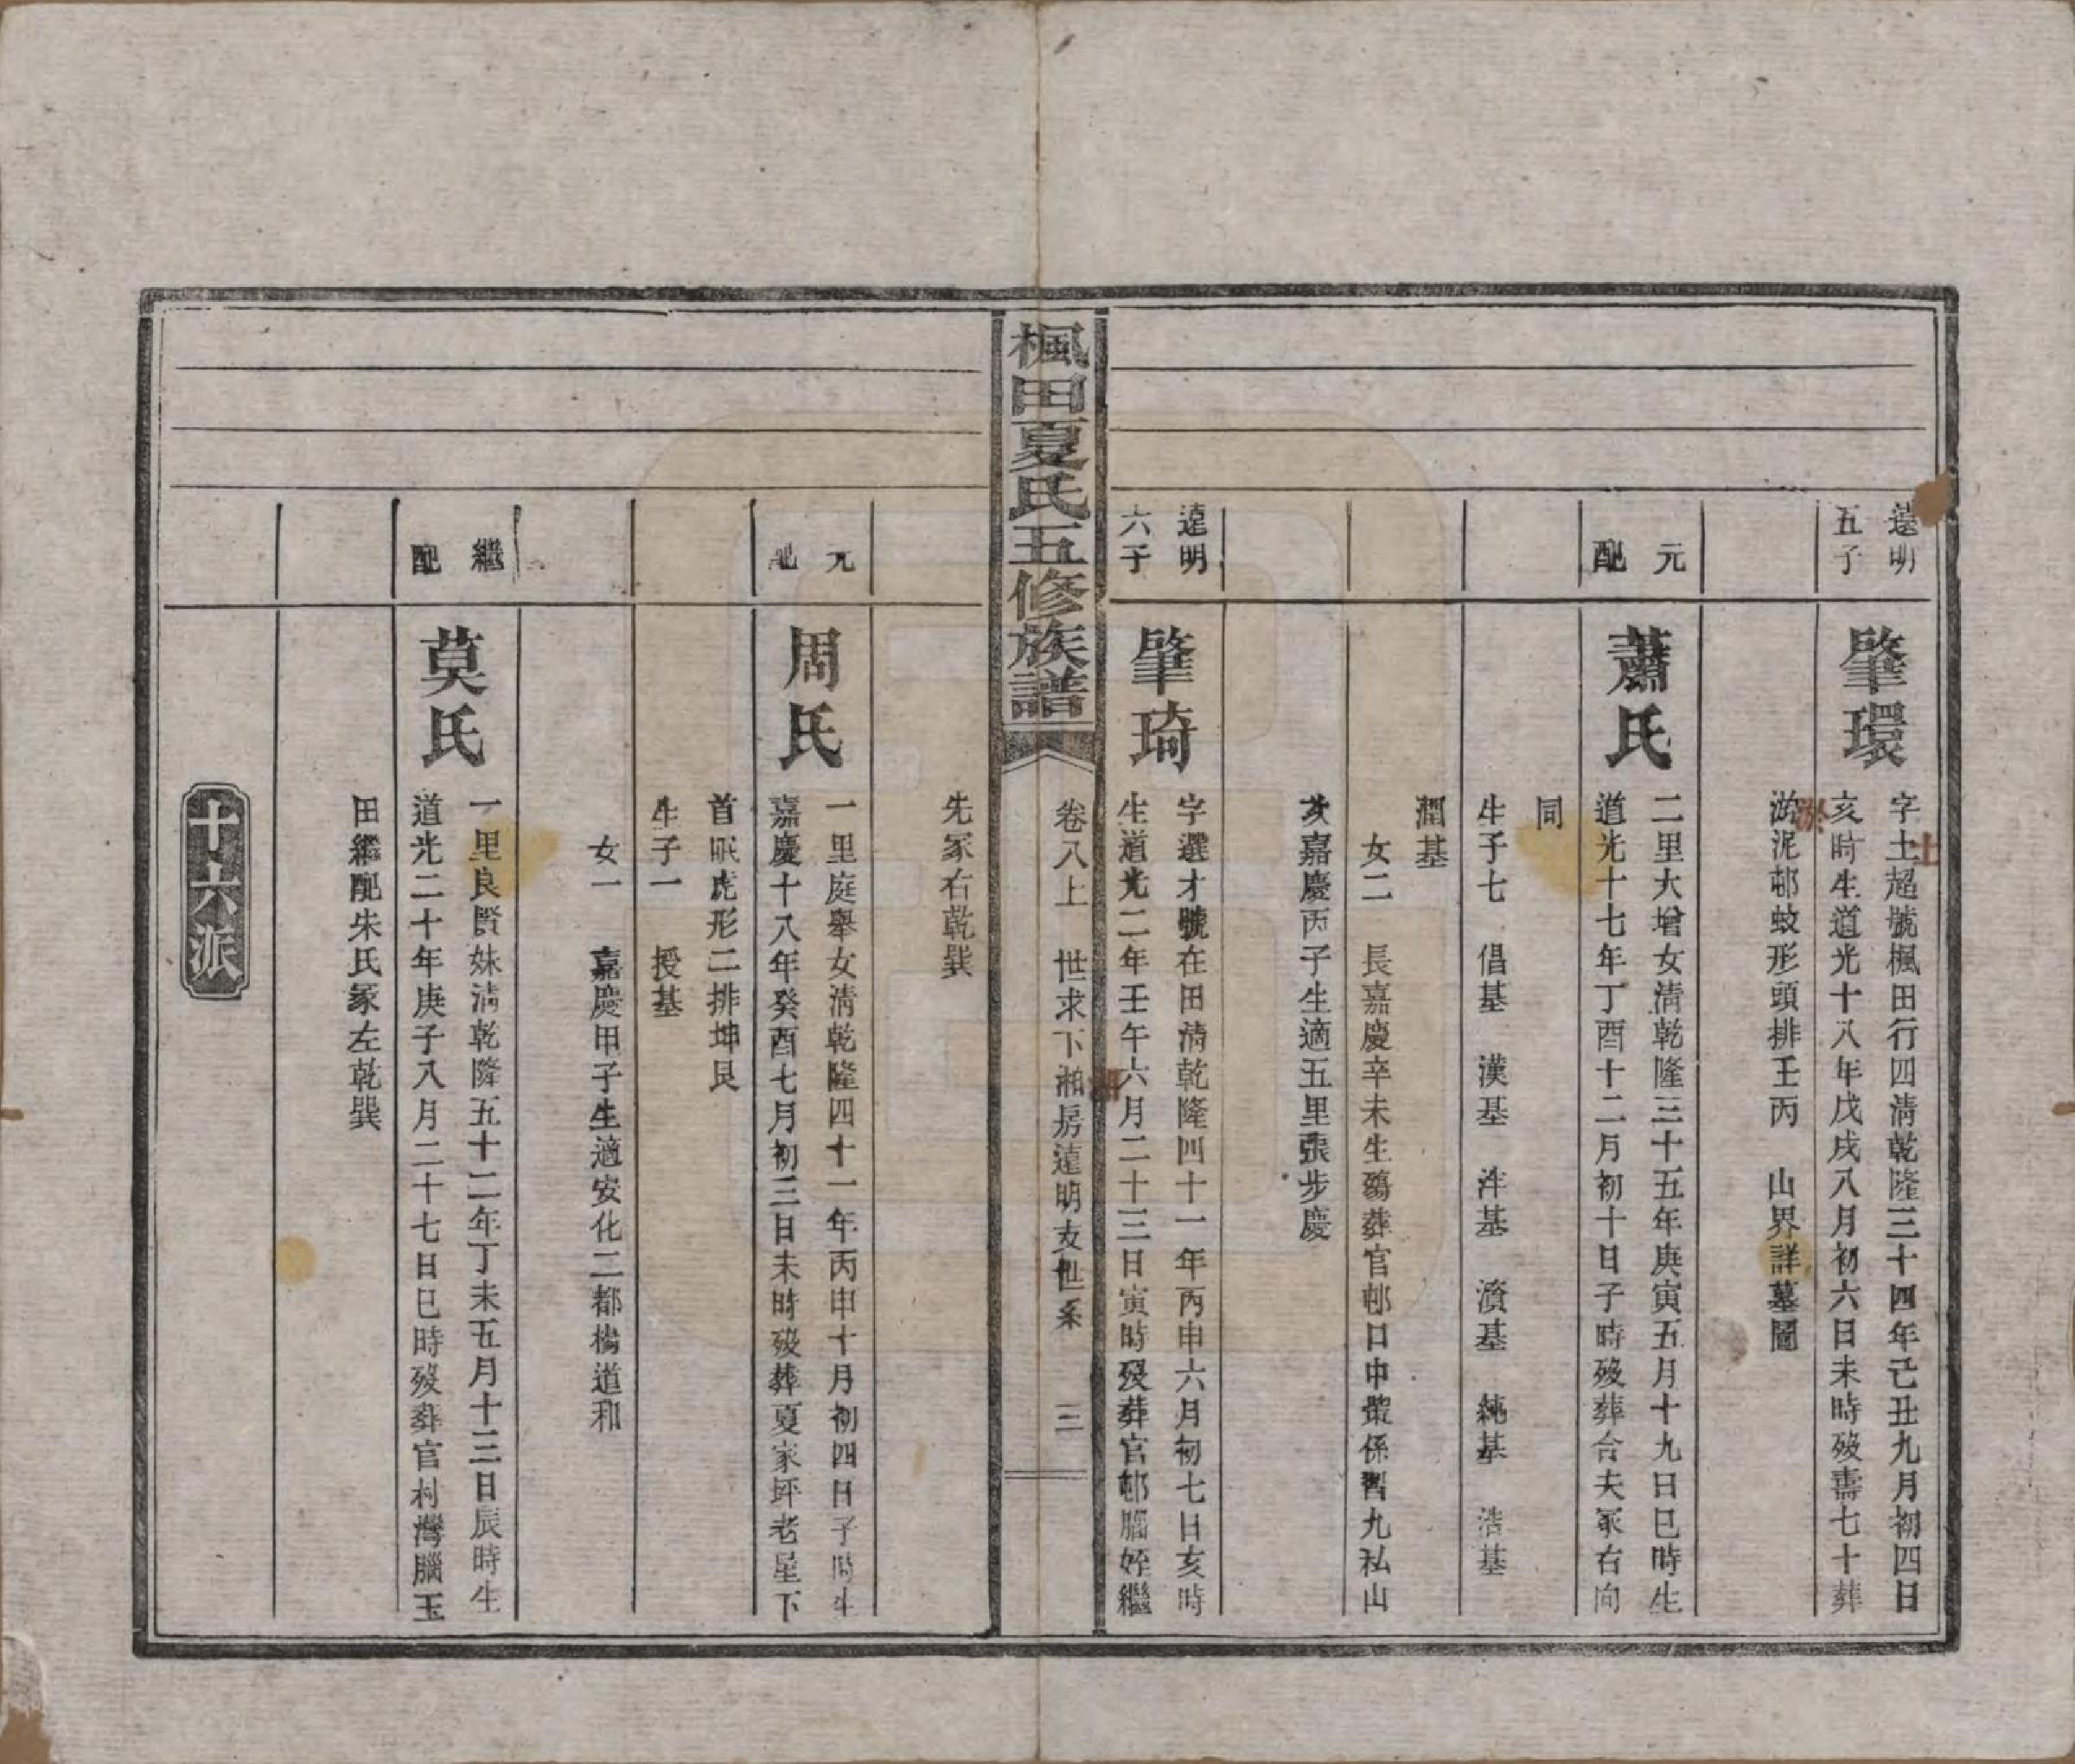 遠明
五子
肇環
字士超號楓田行四淸乾隆三十四年己丑九月初四日
亥時生道光十八年戊戌八月初六日未時歿壽七十葬
淤泥邨蚊形頭排壬丙　山界詳墓圖
元
配
蕭氏
二里大增女淸乾隆三十五年庚寅五月十九日巳時生
道光十七年丁酉十二月初十日子時歿葬合夫冢右向
同
生子七　倡基　漢基　泮基　濱基　純基　浩基
潤基
女二　長嘉慶辛未生殤葬官邨口申 係習九私山
次嘉慶丙子生適五里張步慶
遠明
六子
肇琦
字選才號在田淸乾隆四十一年丙申六月初七日亥時
生道光二年壬午六月二十三日寅時歿葬官邨腦姪繼
楓田夏氏五修族譜
卷八上　世求下湘房遠明支世系　三
先冢右乾巽
元
配
周氏
一里庭舉女淸乾隆四十一年丙申十月初四日子時生
嘉慶十八年癸酉七月初三日未時歿葬夏家坪老屋下
首眠虎形二排坤艮
生子一　授基
女一　嘉慶甲子生適安化二都楊道和
繼
配
莫氏
一里良賢妹淸乾隆五十二年丁未五月十三日辰時生
道光二十年庚子八月二十七日巳時歿葬官村灣腦玉
田繼配朱氏冢左乾巽
十六派
士
淤
湘